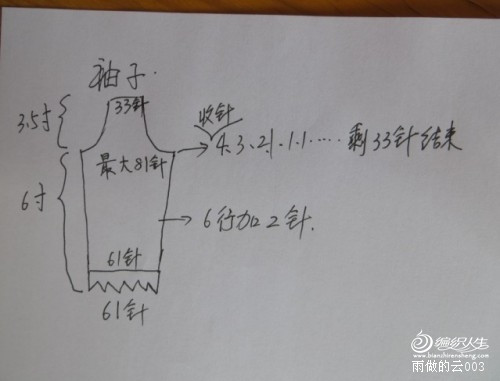 袖子.
33针
3.5寸
收针
4、3、2、1、1、1……剩33针结束
最大81针
6寸
6行加2针.
61针
61针
编织人生
www.bianzhirensheng.com
雨做的云003